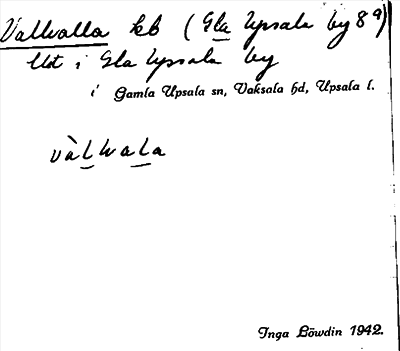 Valhalla kb (Gla Upsala by 8 9)
Ust i Gla Upsala by
i Gamla Upsala sn, Vaksala hd, Upsala l.
vàlhala
Inga Löwdin 1942.